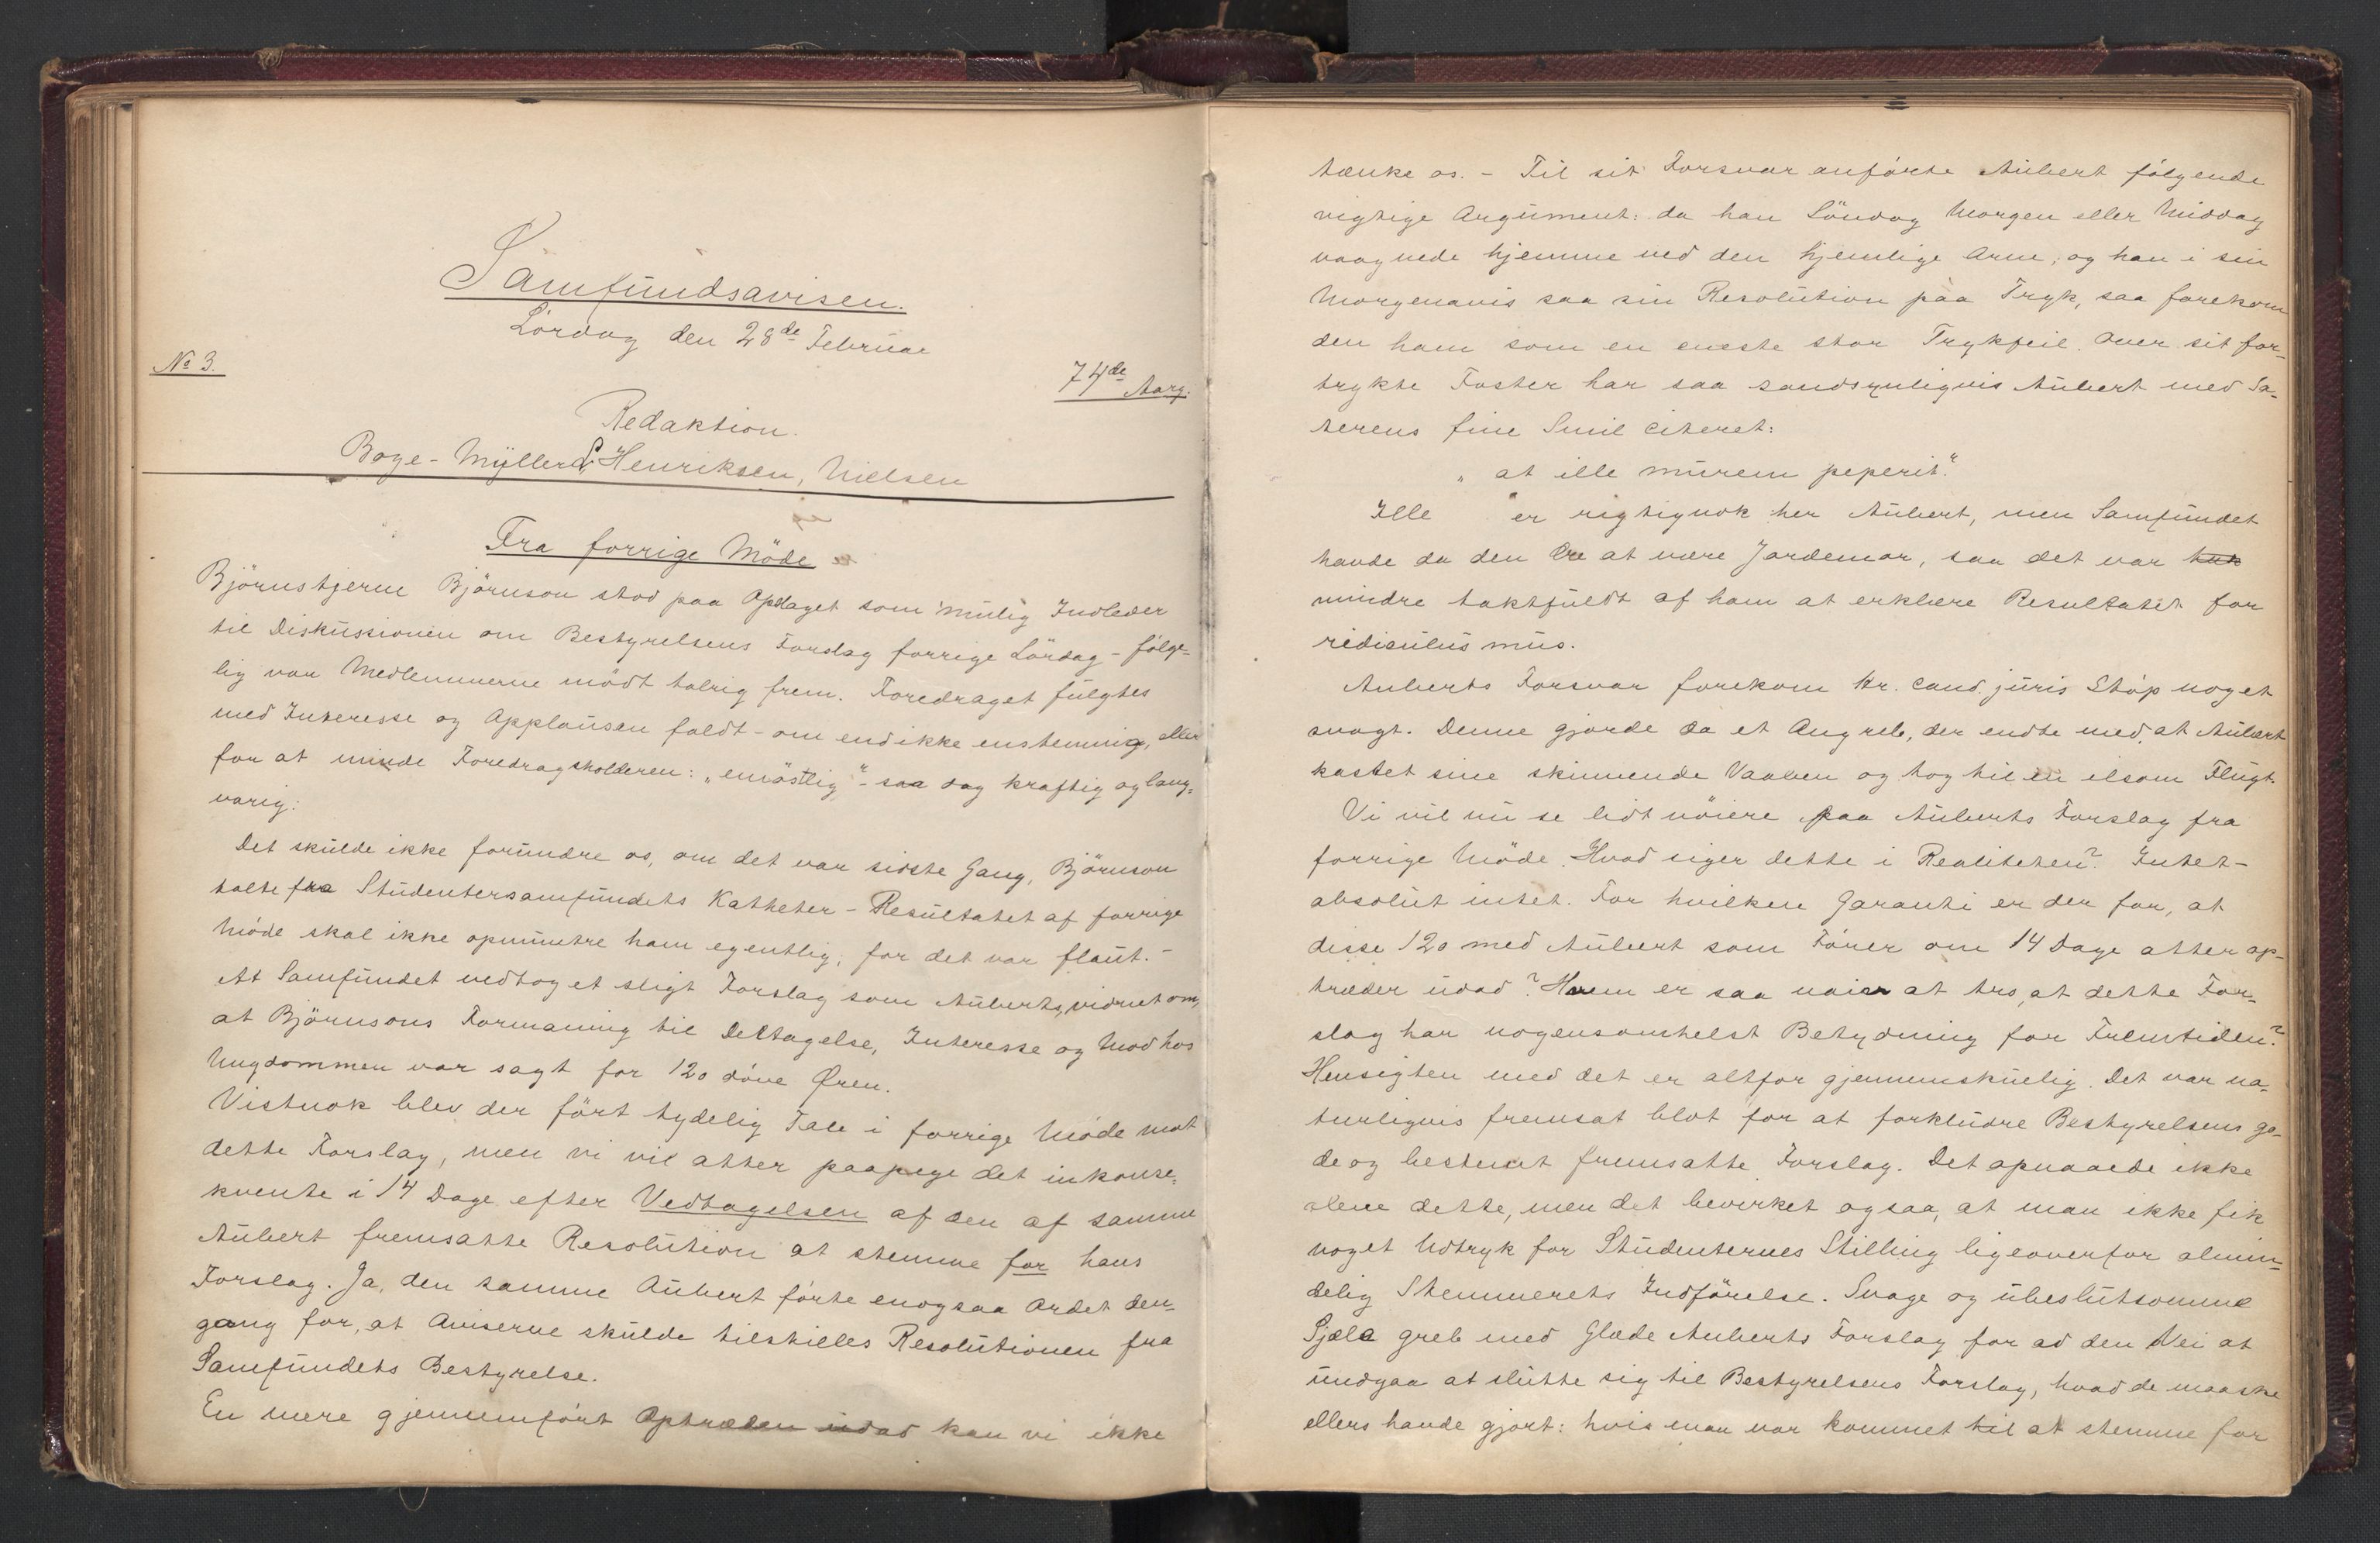 Samfundsavisen.
Lördag den 28de Februar
No 3.
74de Aarg.
Redaktion.
Boye-Myller, Henriksen, Nielsen
Fra forrige Möde
Björnstjerne Björnson stod paa Opslaget som mulig Indleder
til Diskussionen om Bestyrelsens Forslag forrige Lördag - fölge-
lig var Medlemmerne mödt talrig frem. Foredraget fulgtes
med Interesse og Applausen faldt - om end ikke enstemmig, eller
for at minde Foredragsholderen: "enröstlig" - saa dog kraftig og lang-
varig.
Det skulde ikke forundre os, om det var sidste Gang, Björnson
talte fra Studentersamfundets Katheter - Resultatet af forrige
Möde skal ikke opmuntre ham egentlig; for det var flaut. -
At Samfundet vedtog et sligt Forslag som Auberts, vidnet om,
at Björnsons Formaning til Deltagelse, Interesse og Mod hos
Ungdommen var sagt for 120 döve Ören.
Vistnok blev der fört tydelig Tale i forrige Möde mot
dette Forslag, men vi vil atter paapege det inkonse-
kvente i 14 Dage efter Vedtagelsen af den af samme
Aubert fremsatte Resolution at stemme for hans
Forslag. Ja, den samme Aubert förte enogsaa Ordet den-
gang for, at Aviserne skulde tilstilles Resolutionen fra
Samfundets Bestyrelse.
En mere gjennemfört Optræden udad kan vi ikke
tænke os. - Til sit Forsvar anförte Aubert fölgende
vigtige Argument: da han Söndag Morgen eller Middag
vaagnede hjemme ved den hjemlige Arne, og han i sin
Morgenavis saa sin Resolution paa Tryk, saa forekom
den ham som en eneste stor Trykfeil. Over sit for-
trykte Foster har saa sandsynligvis Aubert med Sa-
terens fine Smil citeret:
"at ille murem peperit."
Ille er rigtignok her Aubert, men Samfundet
havde da den Ære at være Jordemor, saa det var
mindre taktfuldt af ham at erklære Resultatet for
ridiculus mus.
Auberts Forsvar forekom Hr. cand. juris Stöp noget
svagt. Denne gjorde da et Angreb, der endte med, at Aubert
kastet sine skinnende Vaaben og tog til en ilsom Flugt.
Vi vil nu se lidt nöiere paa Auberts Forslag fra
forrige Möde. Hvad siger dette i Realiteten? Intet -
absolut intet. For hvilken Garanti er der for, at
disse 120 med Aubert som Förer om 14 Dage atter op-
træder udad? Hvem er saa naiv at tro, at dette For-
slag har nogensomhelst Betydning for Fremtiden?
Hensigten med det er altfor gjennemskuelig. Det var na-
turligvis fremsat blot for at forkludre Bestyrelsens go-
de og bestemt fremsatte Forslag. Det opnaaede ikke
alene dette, men det bevirket ogsaa, at man ikke fik
noget Udtryk for Studenternes Stilling ligeoverfor almin-
delig Stemmerets Indförelse. Svage og ubeslutsomme
Sjæle greb med Glæde Auberts Forslag for ad den Vei at
undgaa at slutte sig til Bestyrelsens Forslag, hvad de maaske
ellers havde gjort: hvis man var kommet til at stemme for